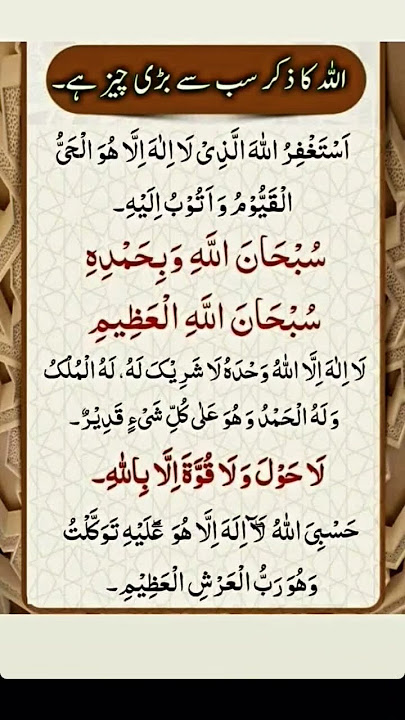 اللہ کا ذکر سب سے بڑی چیز ہے۔
اَسْتَغْفِرُ اللهَ الَّذِیْ لَا اِلٰهَ اِلَّا هُوَ الْحَیُّ
الْقَیُّوْمُ وَ اَتُوْبُ اِلَیْهِ۔
سُبْحَانَ اللَّهِ وَبِحَمْدِهِ
سُبْحَانَ اللَّهِ الْعَظِيمِ
لَا اِلٰهَ اِلَّا اللهُ وَحْدَهٗ لَا شَرِیْكَ لَهٗ، لَهُ الْمُلْكُ
وَ لَهُ الْحَمْدُ وَ هُوَ عَلٰی كُلِّ شَیْءٍ قَدِیْرٌ۔
لَا حَوْلَ وَ لَا قُوَّةَ اِلَّا بِاللهِ۔
حَسْبِیَ اللهُ لَاۤ اِلٰهَ اِلَّا هُوَ ؕ عَلَیْهِ تَوَكَّلْتُ
وَ هُوَ رَبُّ الْعَرْشِ الْعَظِیْمِ۔